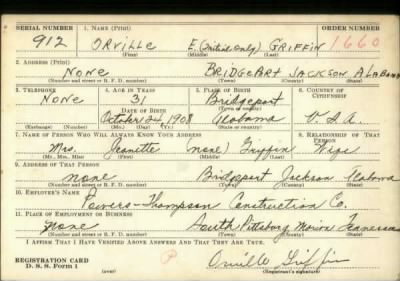 SERIAL NUMBER 1. NAME (Print) ORDER NUMBER
912 ORVILLE E. (Initial Only) GRIFFIN 1660
(First) (Middle) (Last)
2. ADDRESS (Print)
NONE BRIDGEPORT JACKSON ALABAMA
(Number and street or R. F. D. number) (Town) (County) (State)
3. TELEPHONE 4. AGE IN YEARS 5. PLACE OF BIRTH 6. COUNTRY OF CITIZENSHIP
NONE 31 Bridgeport
(Town or county)
DATE OF BIRTH
October 24, 1908 Alabama U.S.A.
(Exchange) (Number) (Mo.) (Day) (Yr.) (State or country)
7. NAME OF PERSON WHO WILL ALWAYS KNOW YOUR ADDRESS 8. RELATIONSHIP OF THAT PERSON
Mrs. Jeanette (none) Griffin Wife
(Mr., Mrs., Miss) (First) (Middle) (Last)
9. ADDRESS OF THAT PERSON
none Bridgeport Jackson Alabama
(Number and street or R. F. D. number) (Town) (County) (State)
10. EMPLOYER'S NAME
Powers-Thompson Construction Co.
11. PLACE OF EMPLOYMENT OR BUSINESS
none South Pittsburg Marion Tennessee
(Number and street or R. F. D. number) (Town) (County) (State)
I AFFIRM THAT I HAVE VERIFIED ABOVE ANSWERS AND THAT THEY ARE TRUE.
REGISTRATION CARD
D. S. S. Form 1 (over) Orville Griffin
(Registrant's signature)